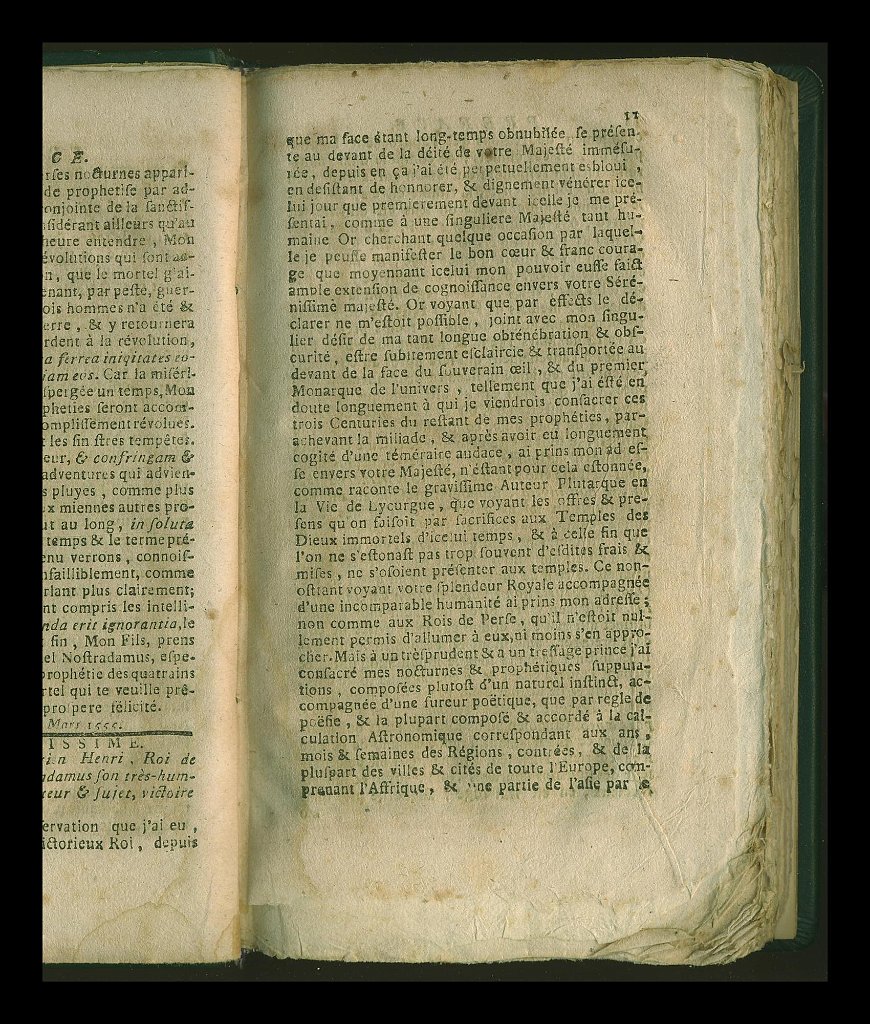 C E.
rses nocturnes appari-
de prophetise par ad-
onjointe de la sanctif-
sidérant ailleurs qu'au
heure entendre, Mon
évolutions qui sont
n, que le mortel g'ai-
enant, par peste, guer-
ois hommes n'a été &
erre, & y retournera
rdent à la révolution,
a ferrea iniqitates eo-
iam eos. Car la miséri-
spergée un temps, Mon
pheties seront accom-
omplissement révolues.
t les sin stres tempêtes.
eur, & confringam &
adventures qui advien-
s pluyes, comme plus
x miennes autres pro-
ut au long, in soluta
temps & le terme pré-
enu verrons, connois-
nfailliblement, comme
rlant plus clairement;
nt compris les intelli-
nda erit ignorantia, le
fin, Mon Fils, prens
el Nostradamus, espe-
prophétie des quatrains
rtel qui te veuille prê-
prospere félicité.
Mars 1555.
ISSIME.
ien Henri, Roi de
adamus son très-hum-
teur & sujet, victoire
servation que j'ai eu,
ictorieux Roi, depuis
11
que ma face étant long-temps obnubilée se présen-
te au devant de la déité de votre Majesté immésu-
rée, depuis en ça j'ai été perpetuellement esbloui,
en desistant de honnorer, & dignement vénérer ice-
lui jour que premierement devant icelle je me pré-
sentai, comme à une singuliere Majesté tant hu-
maine Or cherchant quelque occasion par laquel-
le je peusse manifester le bon cœur & franc coura-
ge que moyennant icelui mon pouvoir eusse faict
ample extension de cognoissance envers votre Séré-
nissime majesté. Or voyant que par effects le dé-
clarer ne m'estoit possible, joint avec mon singu-
lier désir de ma tant longue obténébration & obs-
curité, estre subitement esclaircie & transportée au
devant de la face du souverain œil, & du premier
Monarque de l'univers, tellement que j'ai ésté en
doute longuement à qui je viendrois consacrer ces
trois Centuries du restant de mes prophéties, par-
achevant la miliade, & après avoir eu longuement
cogité d'une téméraire audace, ai prins mon ad es-
se envers votre Majesté, n'éstant pour cela estonnée,
comme raconte le gravissime Auteur Plutarque en
la Vie de Lycurgue, que voyant les offres & pre-
sens qu'on faisoit par sacrifices aux Temples des
Dieux immortels d'icelui temps, & à celle fin que
l'on ne s'estonast pas trop souvent d'esdites frais &
mises, ne s'osoient présenter aux temples. Ce non-
ostant voyant votre splendeur Royale accompagnée
d'une incomparable humanité ai prins mon adresse;
non comme aux Rois de Perse, qu'il n'estoit nul-
lement permis d'allumer à eux, ni moins s'en appro-
cher. Mais à un trèsprudent & a un tressage prince j'ai
consacré mes nocturnes & prophétiques supputa-
tions, composées plutost d'un naturel instinct, ac-
compagnée d'une fureur poëtique, que par regle de
poësie, & la plupart composé & accordé à la cal-
culation Astronomique correspondant aux ans,
mois & semaines des Régions, contrées, & de la
pluspart des villes & cités de toute l'Europe, com-
prenant l'Affrique, & une partie de l'asie par le